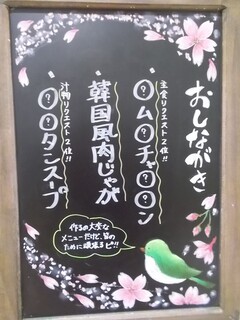 おしながき
主食リクエスト2位!!
・?ム?チャ??ン
・韓国風肉じゃが
汁物リクエスト2位!!
・??タンスープ
作るの大変な
メニューだけど、皆の
ために頑張るピ!!